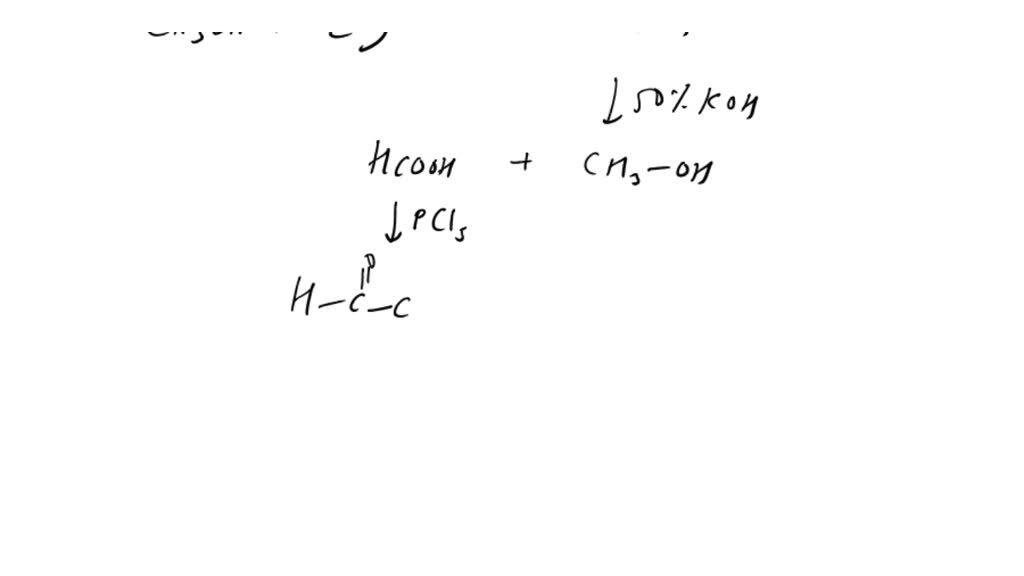 ↓ 50% KOH
HCOOH + CH₃-OH
↓ PCl₅
O
H-C-C